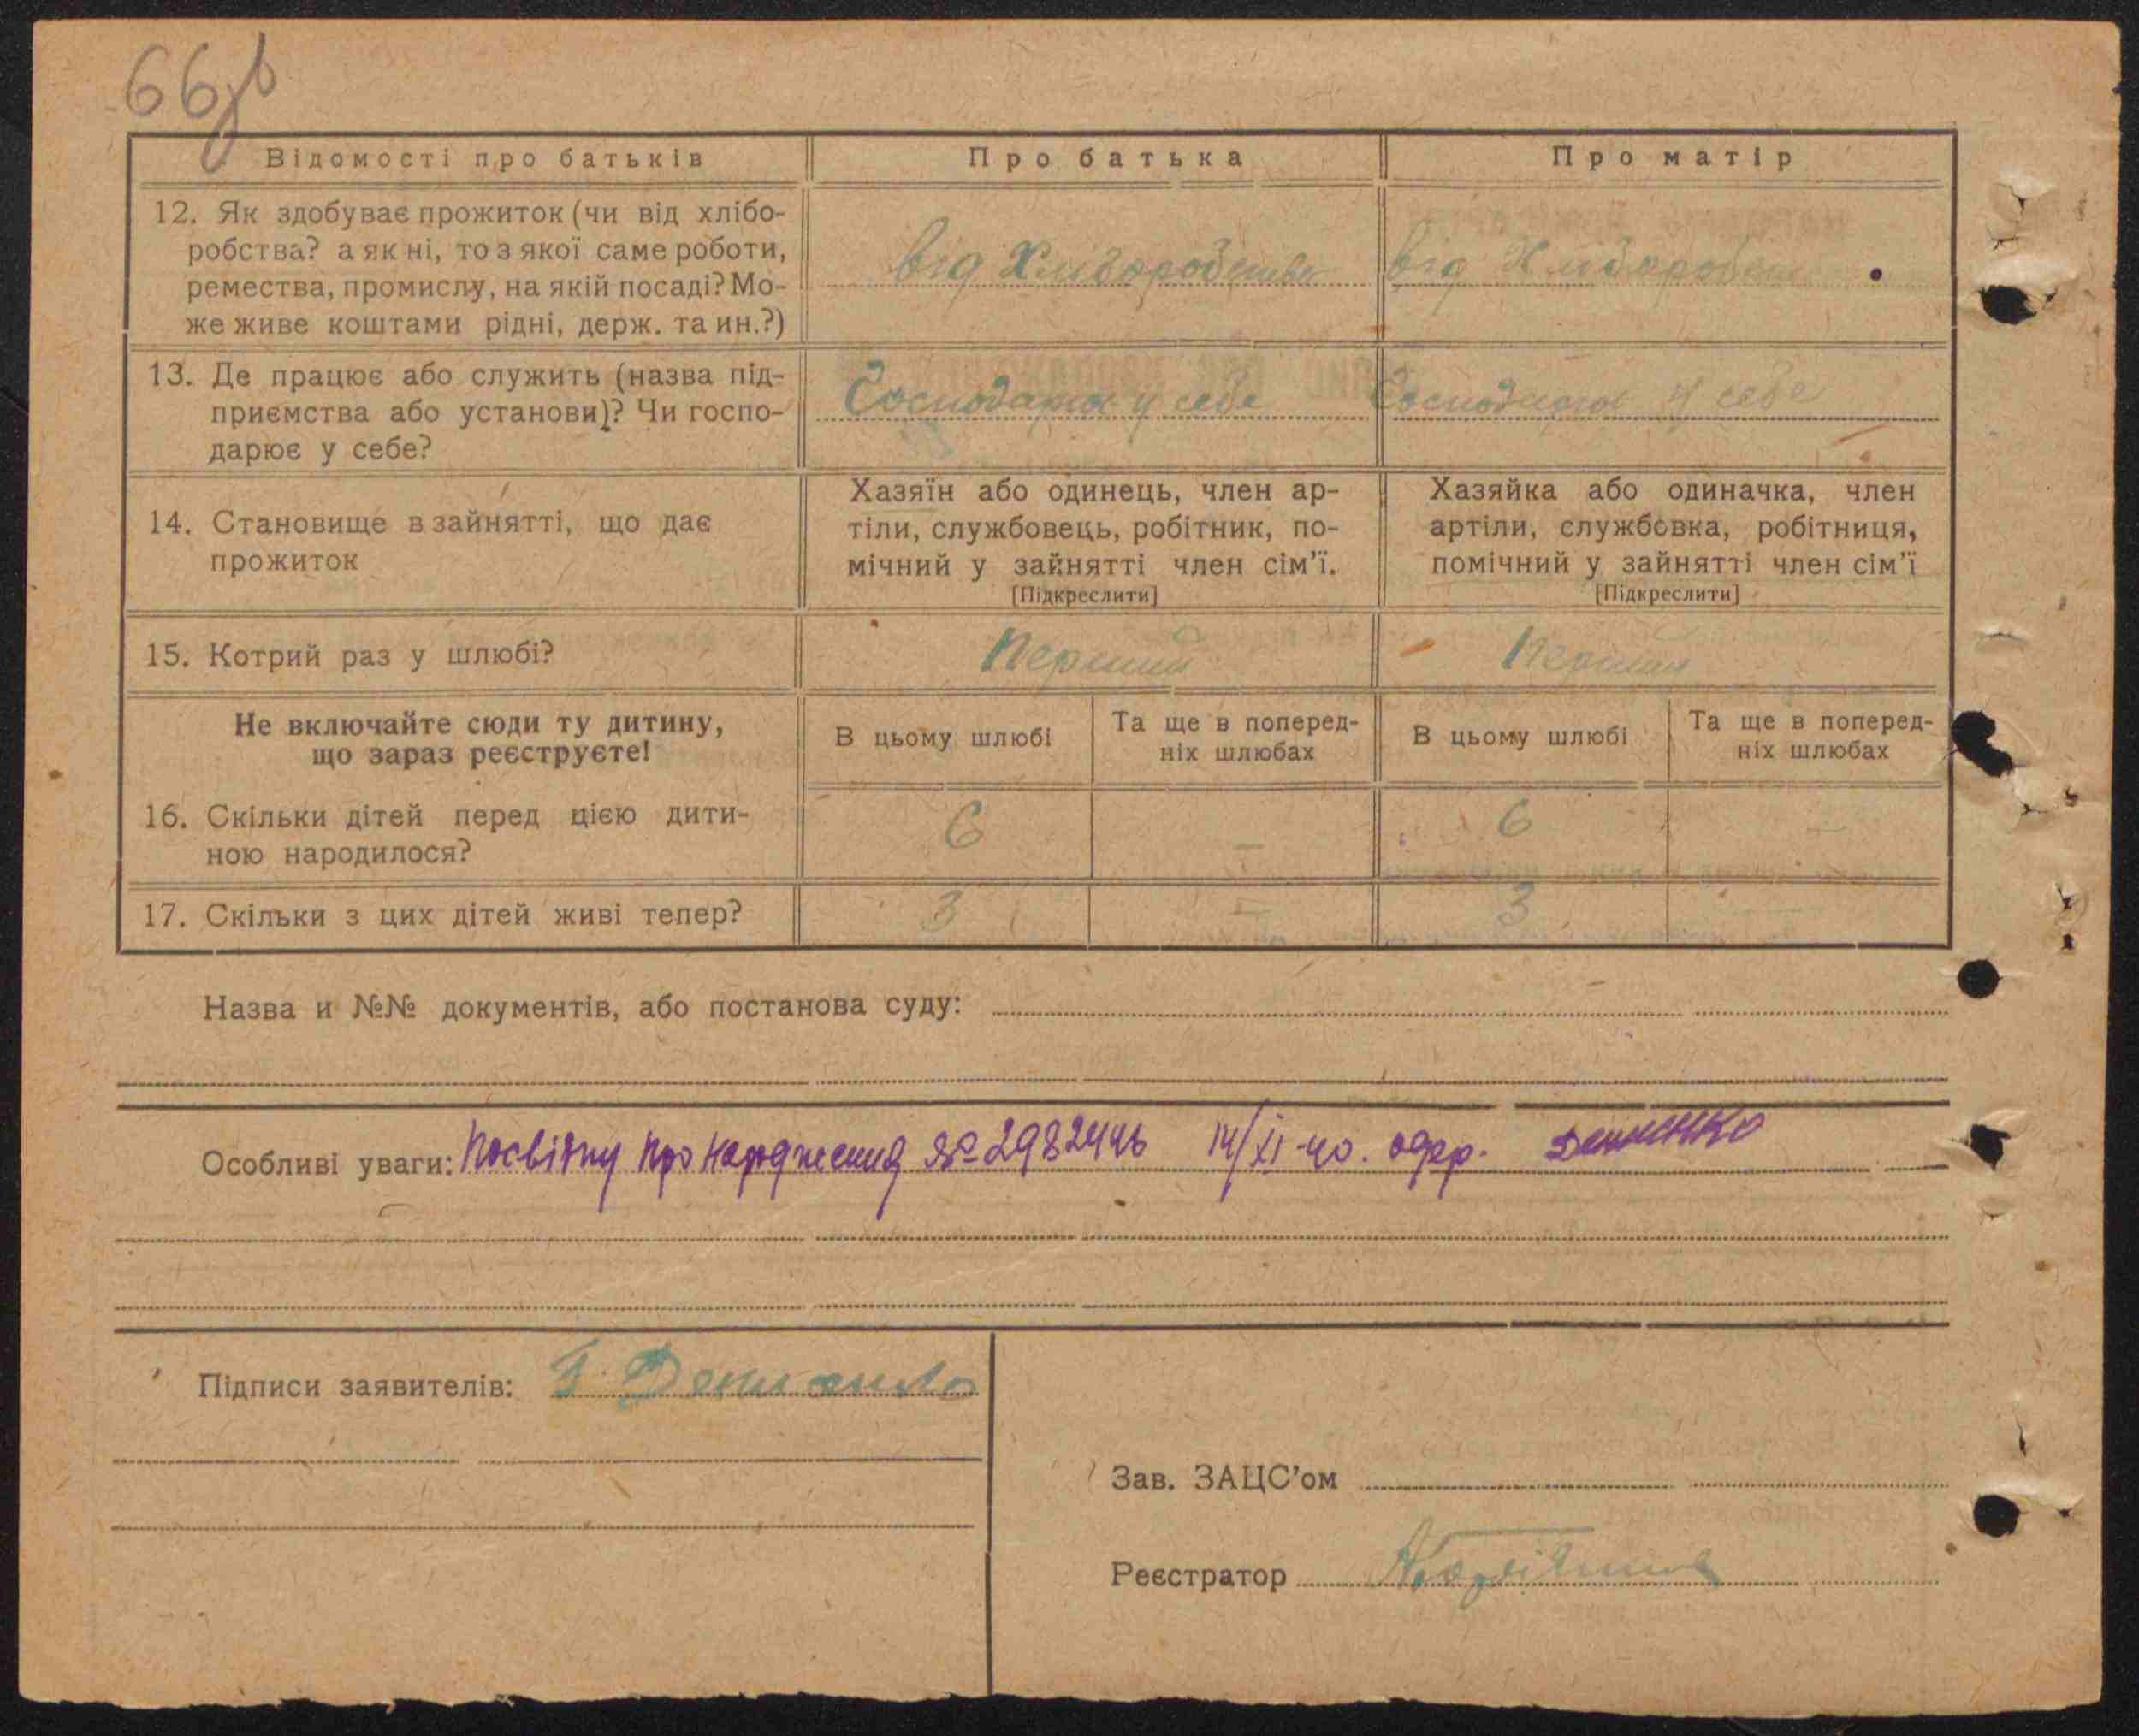 66зв
Відомості про батьків
Про батька
Про матір
12. Як здобуває прожиток (чи від хлібо-
робства? а як ні, то з якої саме роботи,
ремества, промислу, на якій посаді? Мо-
же живе коштами рідні, держ. та ин.?)
від Хліборобства
від Хліборобства
13. Де працює або служить (назва під-
приємства або установи)? Чи госпо-
дарює у себе?
Господарює у себе
Господарює у себе
14. Становище в зайнятті, що дає
прожиток
Хазяїн або одинець, член ар-
тіли, службовець, робітник, по-
мічний у зайнятті член сім'ї.
[Підкреслити]
Хазяйка або одиначка, член
артіли, службовка, робітниця,
помічний у зайнятті член сім'ї
[Підкреслити]
15. Котрий раз у шлюбі?
Перший
Перший
Не включайте сюди ту дитину,
що зараз реєструєте!
В цьому шлюбі
Та ще в поперед-
ніх шлюбах
В цьому шлюбі
Та ще в поперед-
ніх шлюбах
16. Скільки дітей перед цією дити-
ною народилося?
6
—
6
—
17. Скільки з цих дітей живі тепер?
3
—
3
Назва и №№ документів, або постанова суду:
Особливі уваги: Посвітку про народження № 2982446 14/XI-40. одер. Денисенко
Підписи заявителів:
Зав. ЗАЦС'ом
Реєстратор